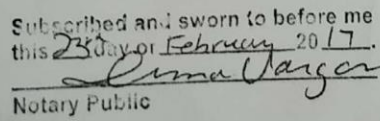 Subscribed and sworn to before me
this 23rd day of February 2017.
Irma Vargas
Notary Public